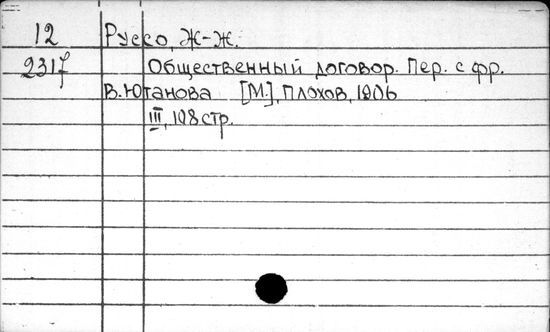 12 Руссо, Ж-Ж.
231f Общественный договор. Пер. с фр.
В. Ютанова [М.], Плохов, 1906
III, 198 стр.